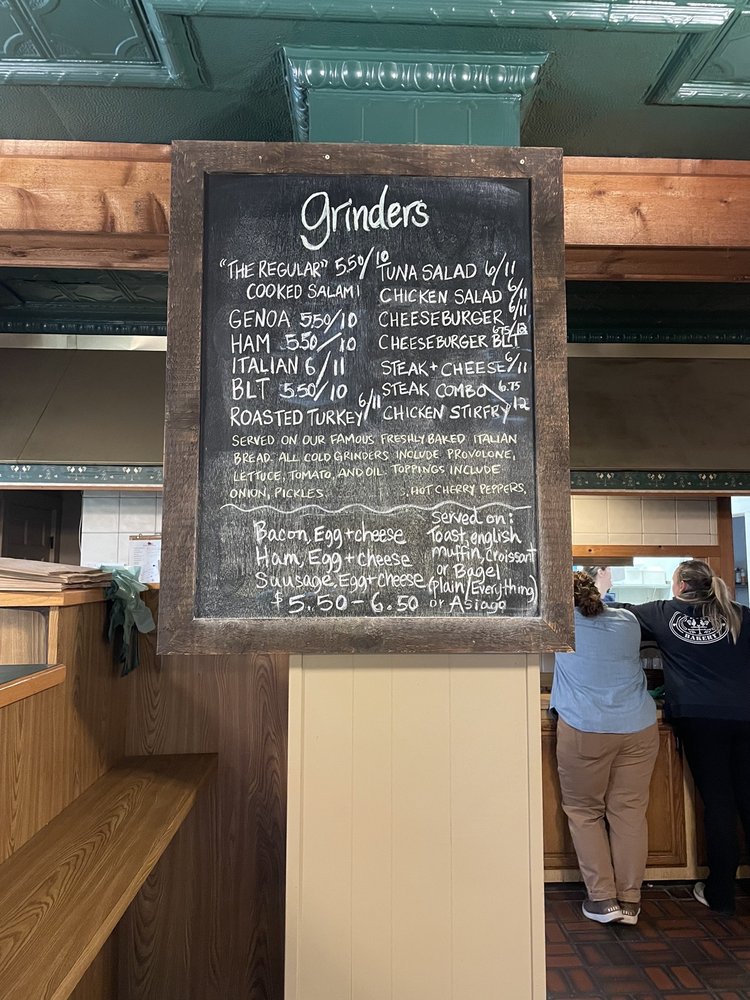 Grinders
"THE REGULAR" 5.50/10
COOKED SALAMI
GENOA 5.50/10
HAM 5.50/10
ITALIAN 6/11
BLT 5.50/10
ROASTED TURKEY 6/11
TUNA SALAD 6/11
CHICKEN SALAD 6/11
CHEESEBURGER 6/11
CHEESEBURGER BLT
STEAK + CHEESE 6/11
STEAK COMBO 6.75
CHICKEN STIRFRY 12
SERVED ON OUR FAMOUS FRESHLY BAKED ITALIAN
BREAD. ALL COLD GRINDERS INCLUDE PROVOLONE,
LETTUCE, TOMATO, AND OIL. TOPPINGS INCLUDE
ONION, PICKLES, HOT CHERRY PEPPERS.
Bacon, Egg + cheese
Ham, Egg + cheese
Sausage, Egg + cheese
$5.50 - 6.50
Served on:
Toast, english
muffin, Croissant
or Bagel
(plain/Everything)
or Asiago
BAKERY